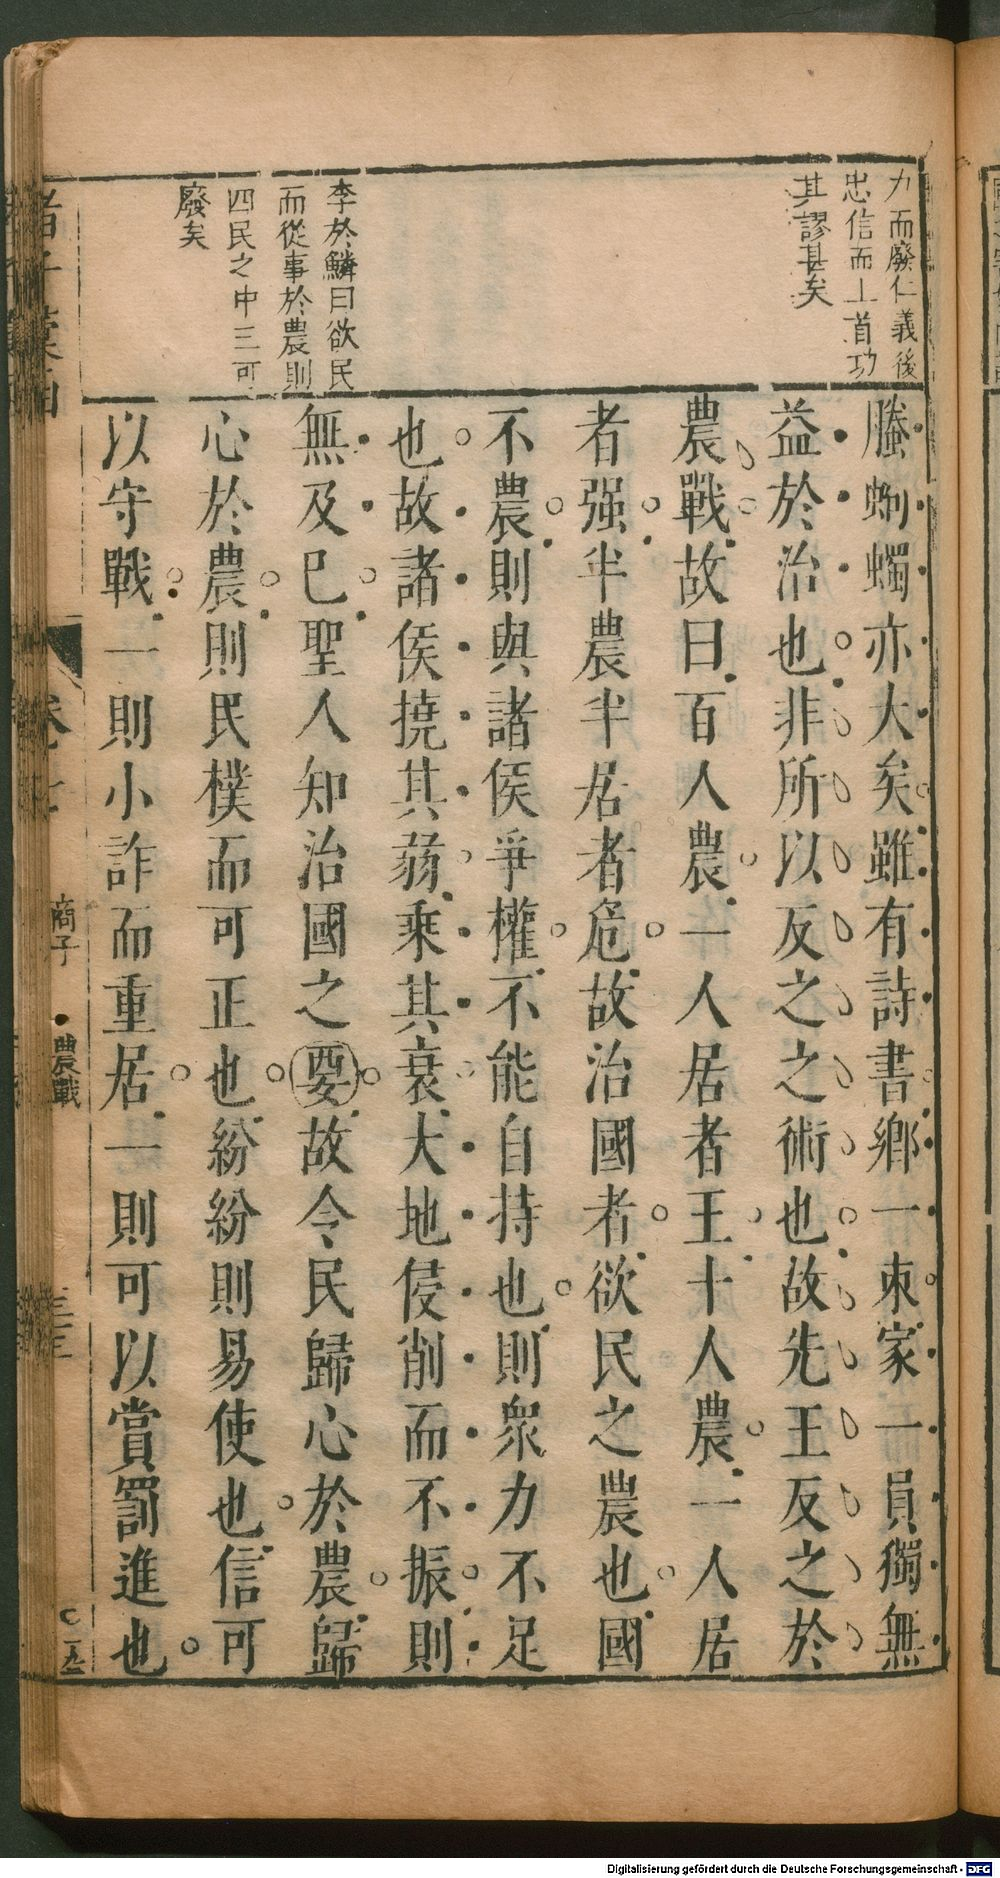 力而廢仁義後
忠信而上首功
其謬甚矣
李於鱗曰欲民
而從事於農則
四民之中三可
廢矣
螣蚼蠋亦大矣雖有詩書鄉一束家一員獨無
益於治也非所以反之之術也故先王反之於
農戰故曰百人農一人居者王十人農一人居
者强半農半居者危故治國者欲民之農也國
不農則與諸侯爭權不能自持也則衆力不足
也故諸侯撓其蒻乘其衰大地侵削而不振則
無及已聖人知治國之要故令民歸心於農歸
心於農則民樸而可正也紛紛則易使也信可
以守戰一則小詐而重居一則可以賞罰進也
商子
農戰
Digitalisierung gefördert durch die Deutsche Forschungsgemeinschaft - DFG